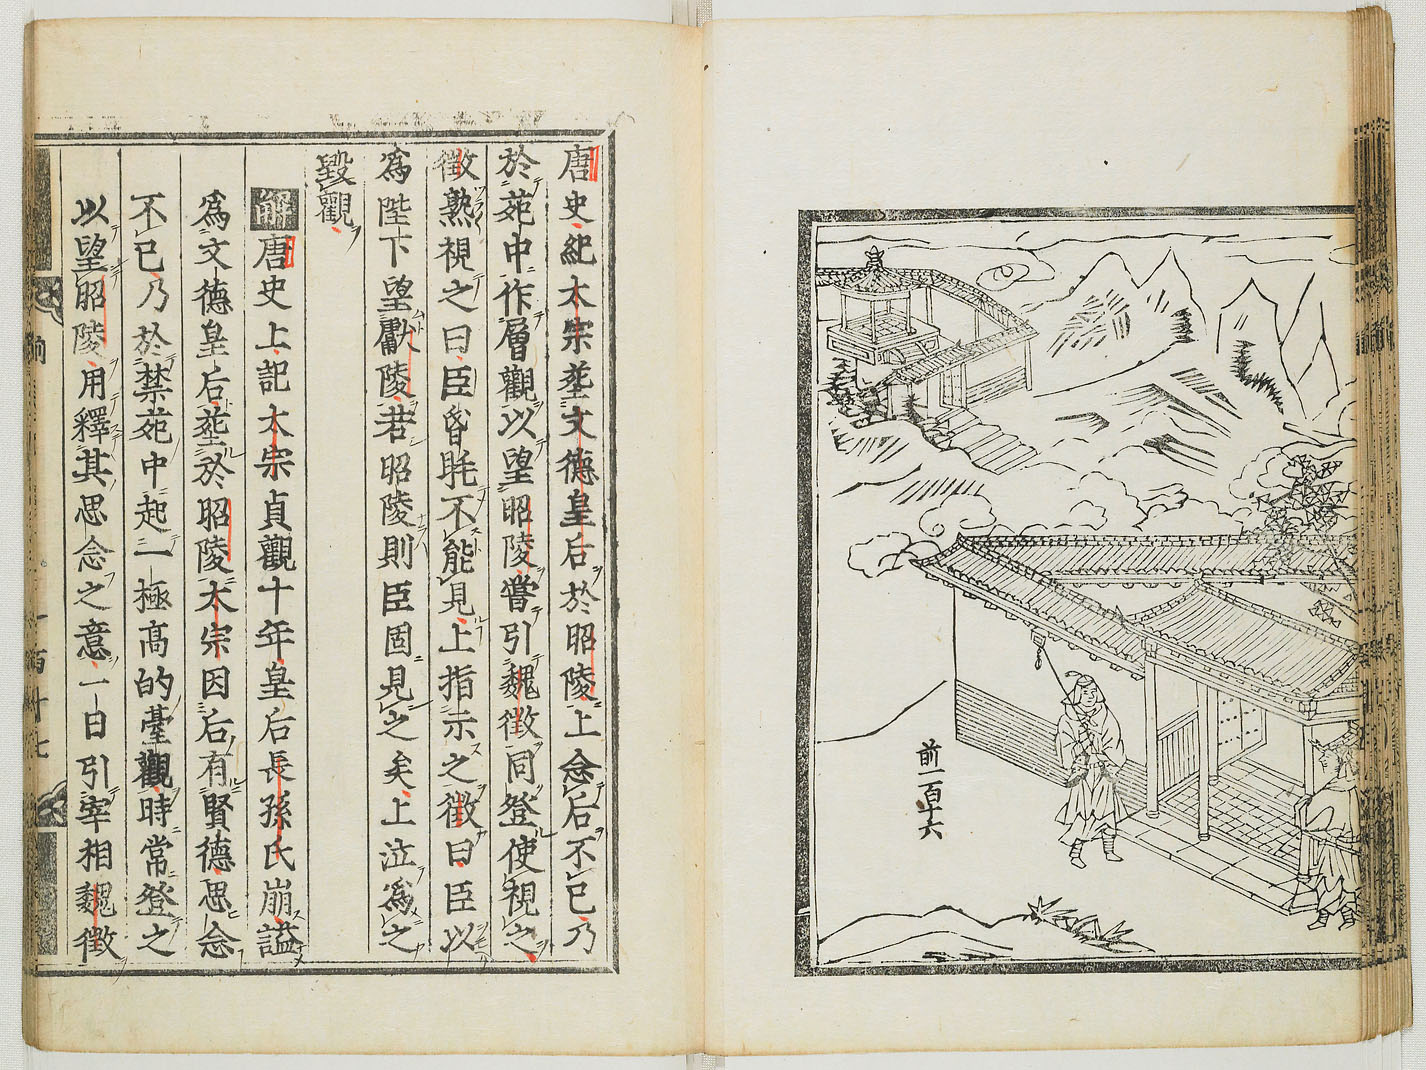 前一百十六
唐史紀太宗葬文德皇后於昭陵上念后不已乃
於苑中作層觀以望昭陵嘗引魏徵同登使視之
徵熟視之曰臣昏眊不能見上指示之徵曰臣以
為陛下望獻陵若昭陵則臣固見之矣上泣為之
毀觀
解唐史上記太宗貞觀十年皇后長孫氏崩謚
為文德皇后葬於昭陵太宗因后有賢德思念
不已乃於禁苑中起一極高的臺觀時常登之
以望昭陵用釋其思念之意一日引宰相魏徵
一百十七